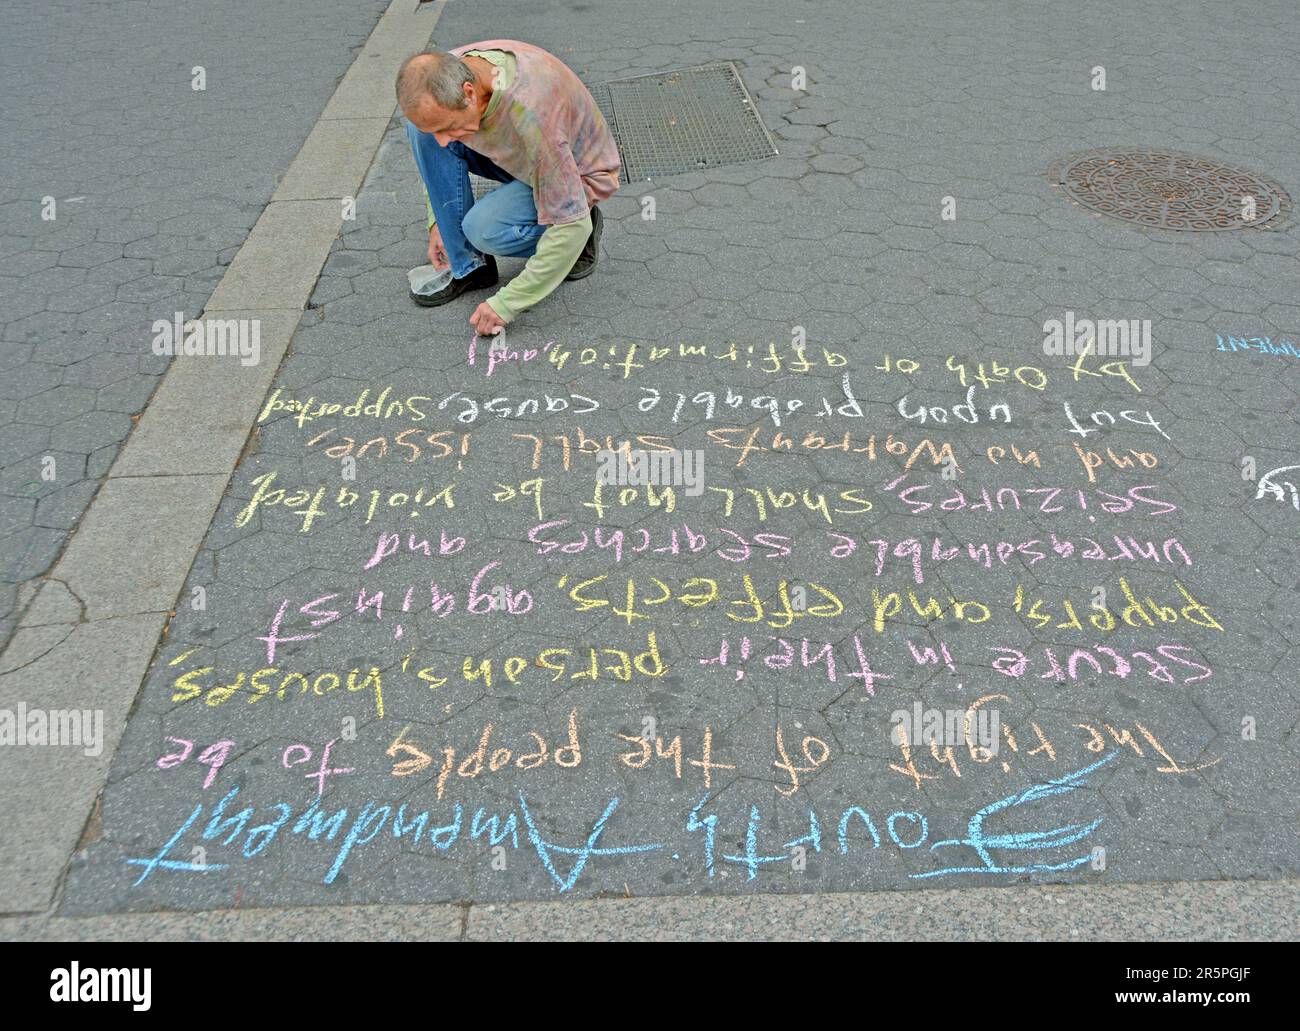 Fourth Amendment
The right of the people to be
secure in their person's, houses,
papers, and effects, against
unreasonable searches and
seizures, shall not be violated,
and no Warrants shall issue,
but upon probable cause, supported
by Oath or affirmation, and
AMENT
alamy
Image ID: 2R5PGJF
www.alamy.com